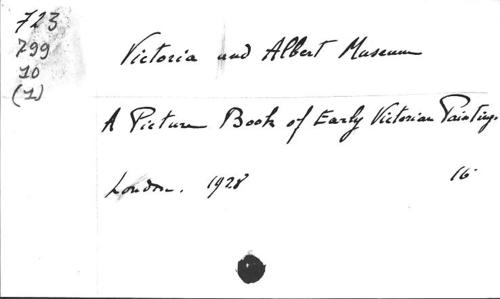 723
799
10
(1)
Victoria and Albert Museum
A Picture Book of Early Victorian Paintings.
London. 1928 16°